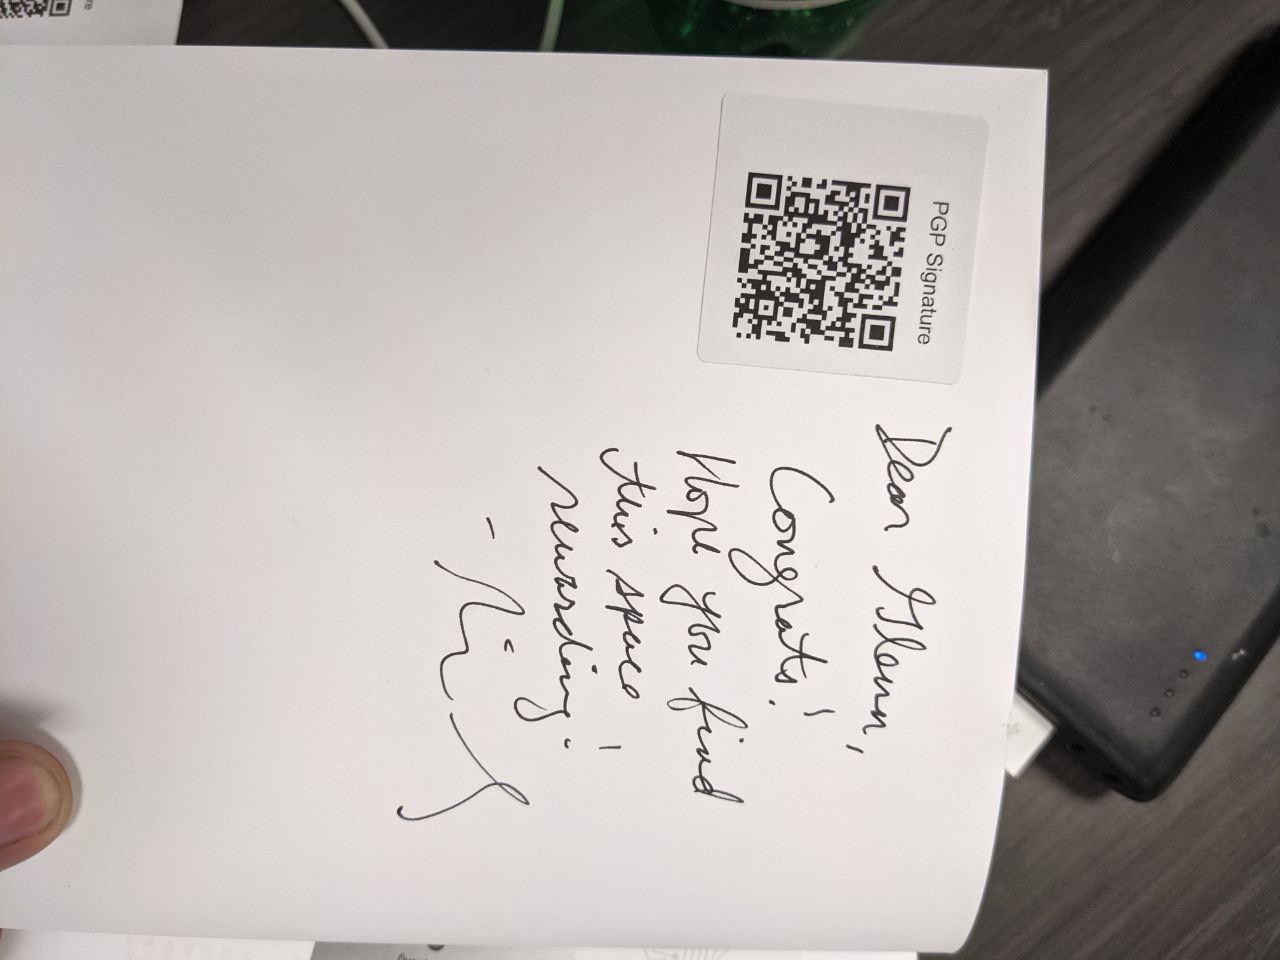 PGP Signature
Dear Glenn,
Congrats!
Hope you find
this space
rewarding!